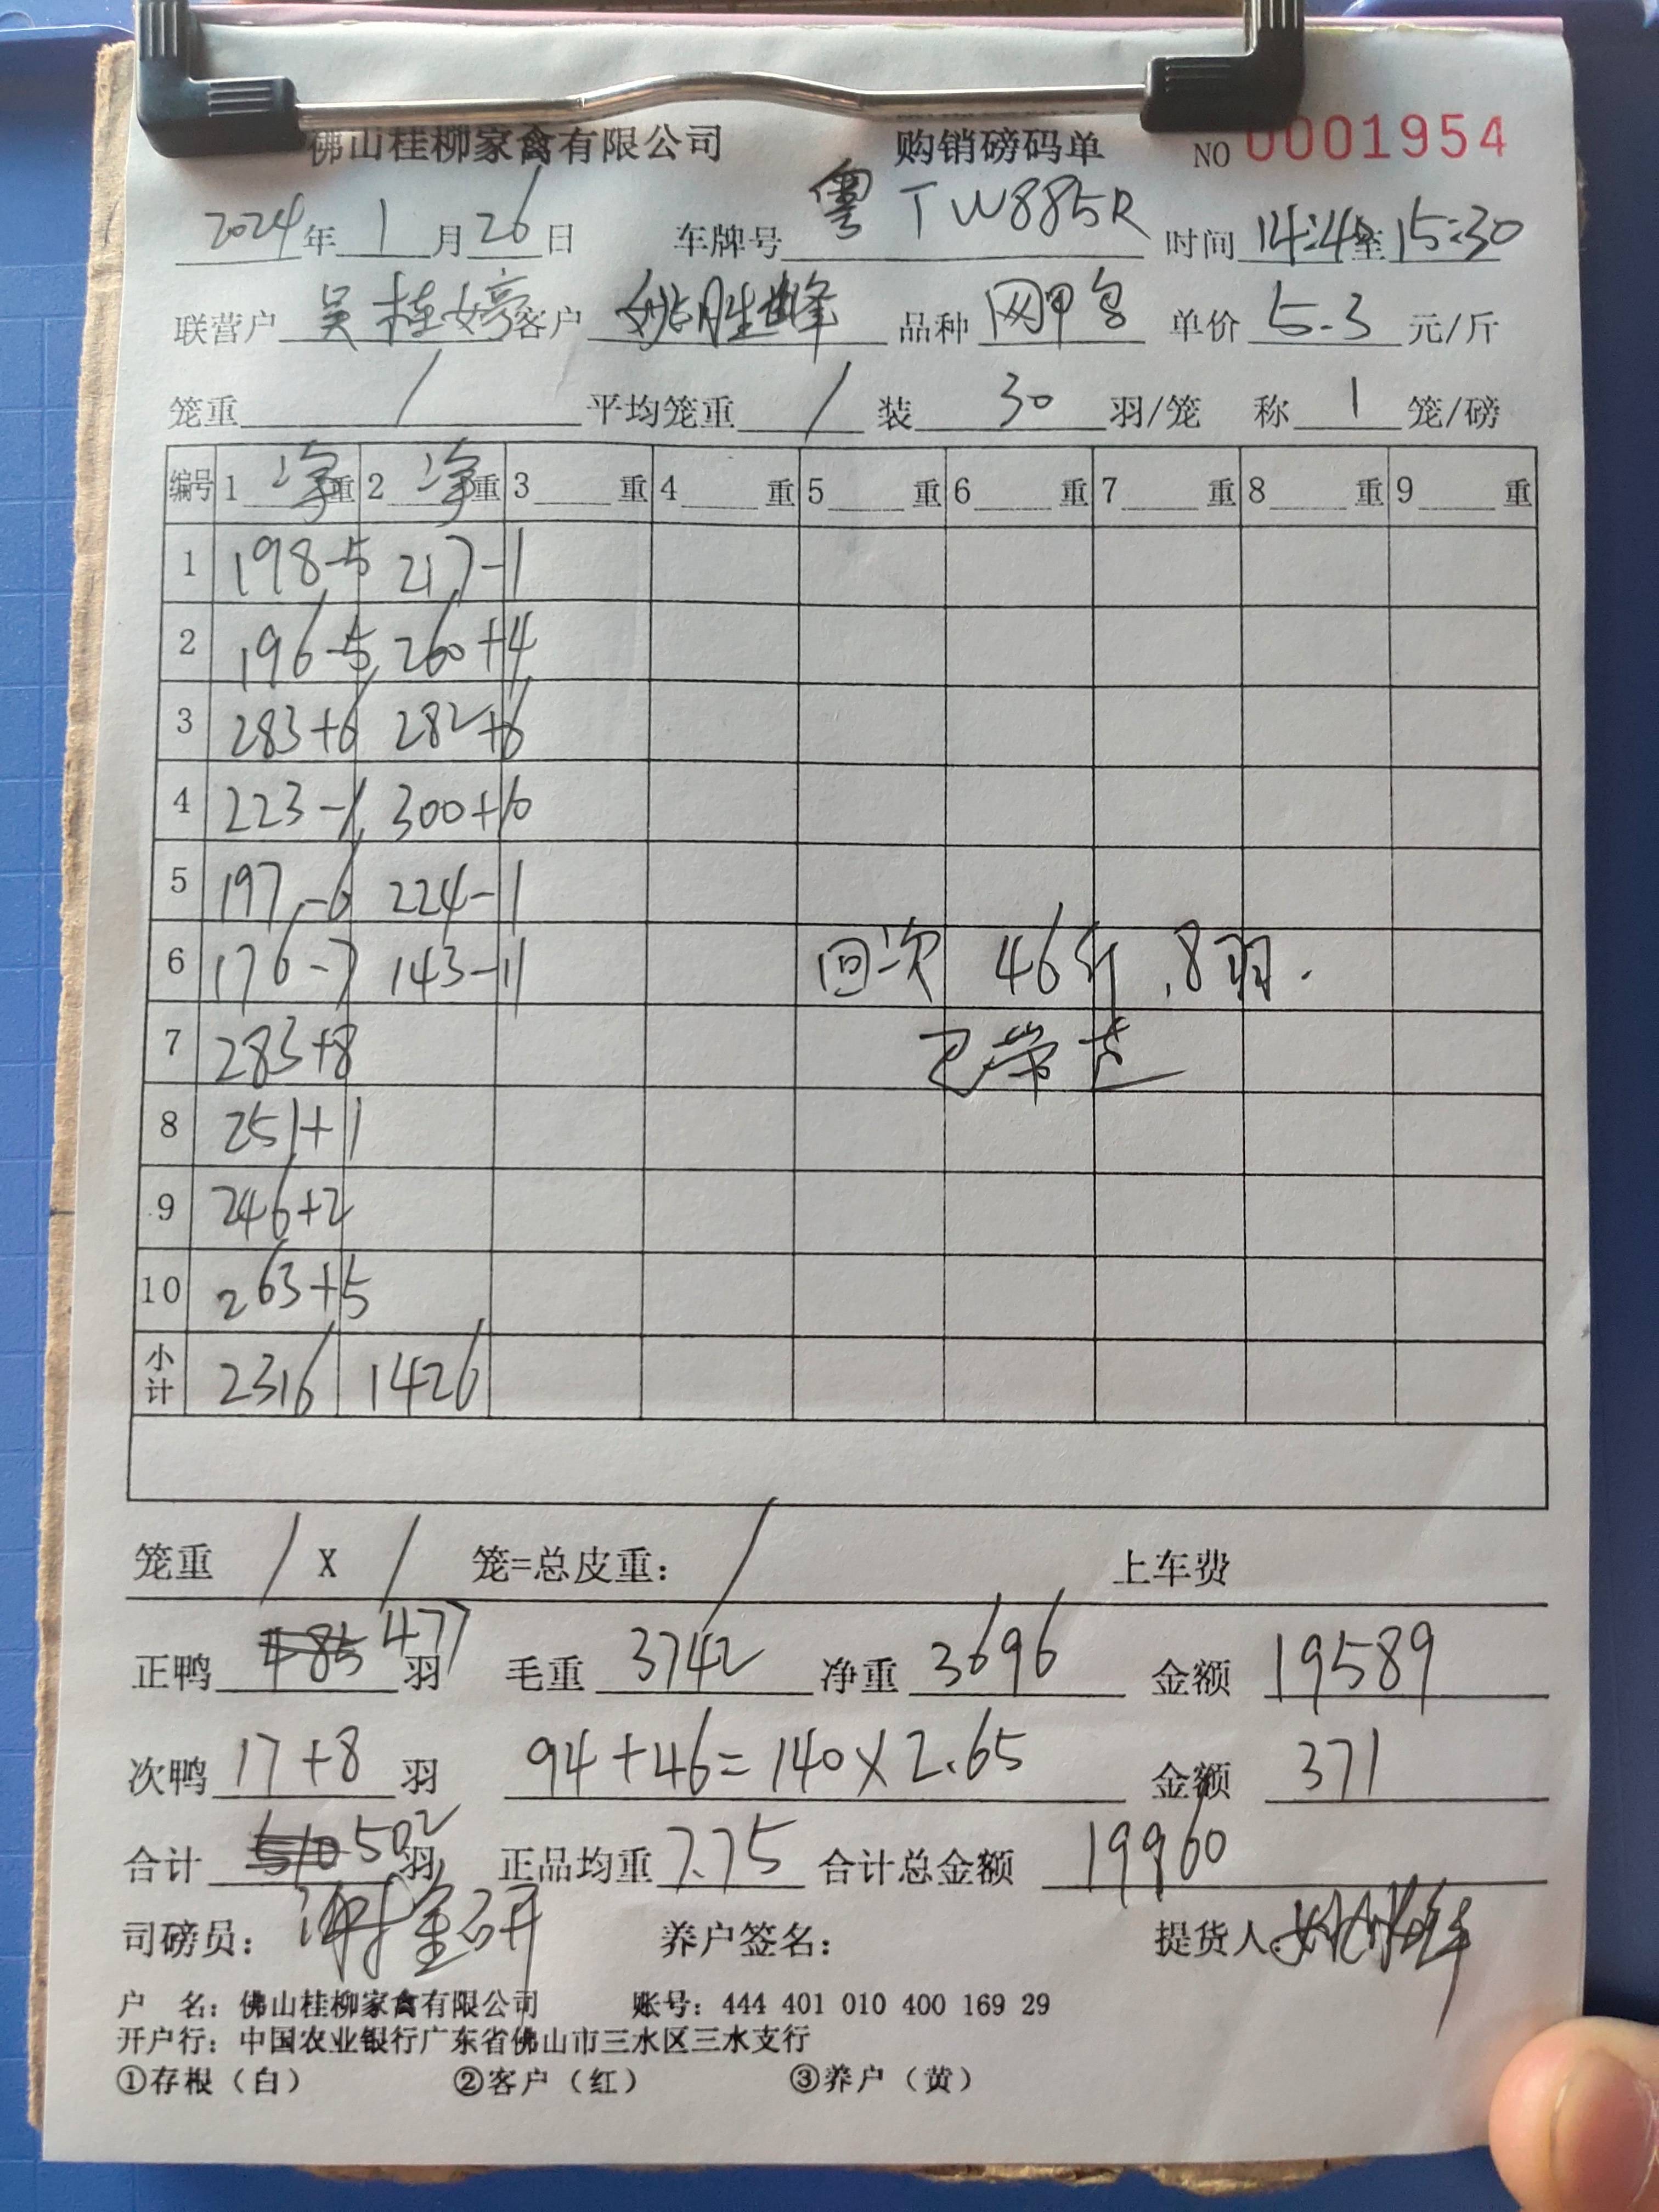 佛山桂柳家禽有限公司 购销磅码单 NO 0001954
2024年 1 月 26 日 车牌号 粤TW885R 时间 14:4 至 15:30
联营户 吴桂婷 客户 姚胜峰 品种 单价 5.3 元/斤
笼重 / 平均笼重 / 装 30 羽/笼 称 1 笼/磅
编号 1 净 重 2 净 重 3 重 4 重 5 重 6 重 7 重 8 重 9 重
1 198-5 217-1
2 196-5 260+4
3 283+6 282+6
4 223-1 300+10
5 197-6 224-1
6 176-7 143-11 回次 46斤.8羽.
7 283+8 已带走
8 251+1
9 246+2
10 263+5
小计 2316 1426
笼重 / X / 笼=总皮重: / 上车费
正鸭 485 477 羽 毛重 3742 净重 3696 金额 19589
次鸭 17+8 羽 94+46=140×2.65 金额 371
合计 510 502 羽 正品均重 7.75 合计总金额 19960
司磅员: 养户签名: 提货人:
户 名: 佛山桂柳家禽有限公司 账号: 444 401 010 400 169 29
开户行: 中国农业银行广东省佛山市三水区三水支行
①存根（白） ②客户（红） ③养户（黄）